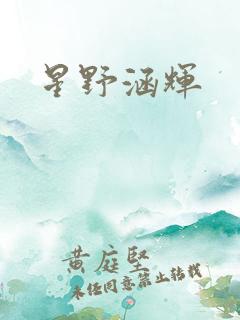 星野涵辉
黄庭坚
未经同意禁止转载